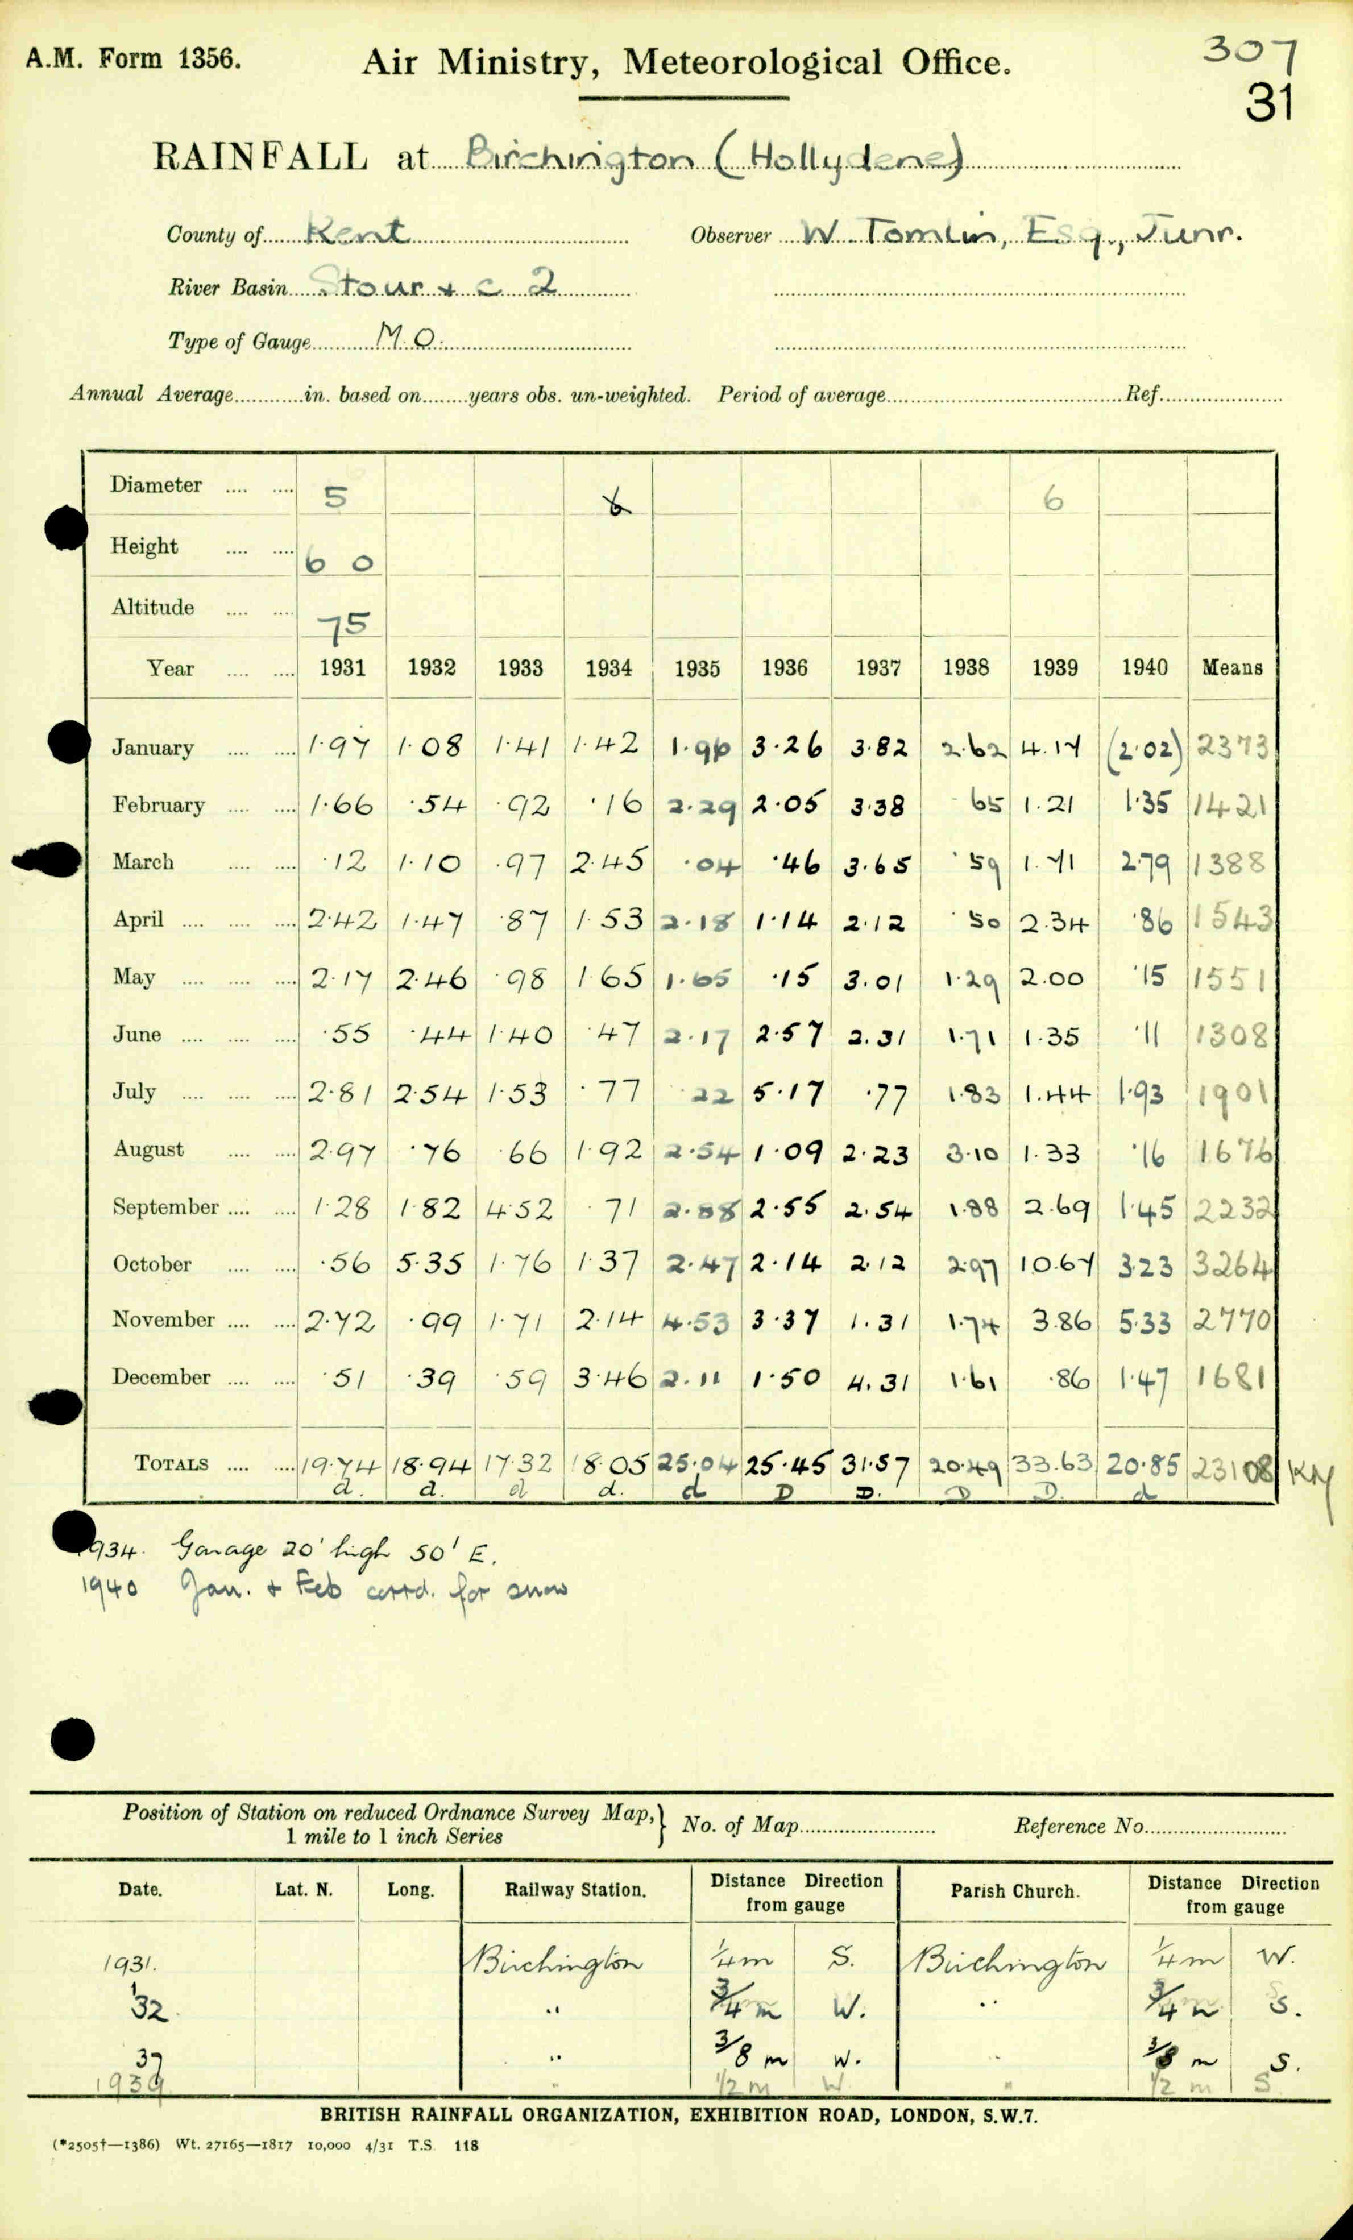 A.M. Form 1356.
Air Ministry, Meteorological Office.
307
31
RAINFALL at Birchington (Hollydene)
County of Kent Observer W. Tomlin, Esq., Junr.
River Basin Stour + c 2
Type of Gauge M.O.
Annual Average in. based on years obs. un-weighted. Period of average Ref.
Diameter 5 6 6
Height 6 0
Altitude 75
Year 1931 1932 1933 1934 1935 1936 1937 1938 1939 1940 Means
January 1.97 1.08 1.41 1.42 1.96 3.26 3.82 2.62 4.17 (2.02) 2373
February 1.66 .54 .92 .16 2.29 2.05 3.38 .65 1.21 1.35 1421
March .12 1.10 .97 2.45 .04 .46 3.65 .59 1.71 2.79 1388
April 2.42 1.47 .87 1.53 2.18 1.14 2.12 .50 2.34 .86 1543
May 2.17 2.46 .98 1.65 1.65 .15 3.01 1.29 2.00 .15 1551
June .55 .44 1.40 .47 2.17 2.57 2.31 1.71 1.35 .11 1308
July 2.81 2.54 1.53 .77 .22 5.17 .77 1.83 1.44 1.93 1901
August 2.97 .76 .66 1.92 2.54 1.09 2.23 3.10 1.33 .16 1676
September 1.28 1.82 4.52 .71 2.88 2.55 2.54 1.88 2.69 1.45 2232
October .56 5.35 1.76 1.37 2.47 2.14 2.12 2.97 10.67 3.23 3264
November 2.72 .99 1.71 2.14 4.53 3.37 1.31 1.74 3.86 5.33 2770
December .51 .39 .59 3.46 2.11 1.50 4.31 1.61 .86 1.47 1681
TOTALS 19.74 18.94 17.32 18.05 25.04 25.45 31.57 20.49 33.63 20.85 23108
d. d. d d. d D D. D D. d
1934. Garage 20' high 50' E.
1940 Jan. + Feb corrd. for snow
Position of Station on reduced Ordnance Survey Map,} No. of Map Reference No.
1 mile to 1 inch Series
Date. Lat. N. Long. Railway Station. Distance Direction from gauge Parish Church. Distance Direction from gauge
1931. Birchington 1/4 m S. Birchington 1/4 m W.
'32 " 3/4 m W. " 3/4 m S.
37 " 3/8 m W. " 3/8 m S.
1939 " 1/2 m W " 1/2 m S
BRITISH RAINFALL ORGANIZATION, EXHIBITION ROAD, LONDON, S.W.7.
(*2505†—1386) Wt. 27165—1817 10,000 4/31 T.S. 118